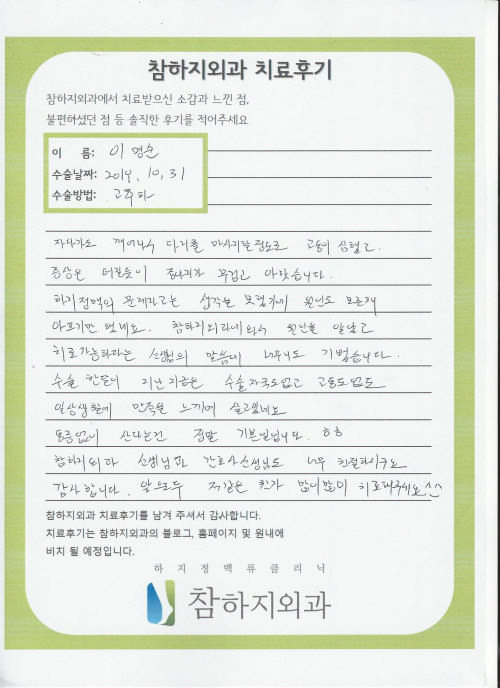 참하지외과 치료후기
참하지외과에서 치료받으신 소감과 느낀 점,
불편하셨던 점 등 솔직한 후기를 적어주세요
이 름: 이영순
수술날짜: 2019. 10. 31
수술방법: 고주파
자다가도 깨어나서 다리를 마사지할 정도로 고통이 심했고.
증상은 터질듯이 종아리가 무겁고 아팠습니다.
하지정맥의 문제라고는 생각을 못했기에 원인도 모른채
아프기만 했네요. 참하지외과에 와서 원인을 알았고
치료가능하다는 선생님의 말씀에 너무나도 기뻤습니다.
수술 한달이 지난 지금은 수술자국도 없고 고통도 없도
일상생활에 만족을 느끼며 살고있네요
통증없이 산다는건 정말 기쁜일입니다. ㅎㅎ
참하지외과 선생님도 간호사선생님도 너무 친절하시구요
감사합니다. 앞으로도 저같은 환자 많이많이 치료해주세요 ^^
참하지외과 치료후기를 남겨 주셔서 감사합니다.
치료후기는 참하지외과의 블로그, 홈페이지 및 원내에
비치 될 예정입니다.
하지정맥류클리닉
참하지외과